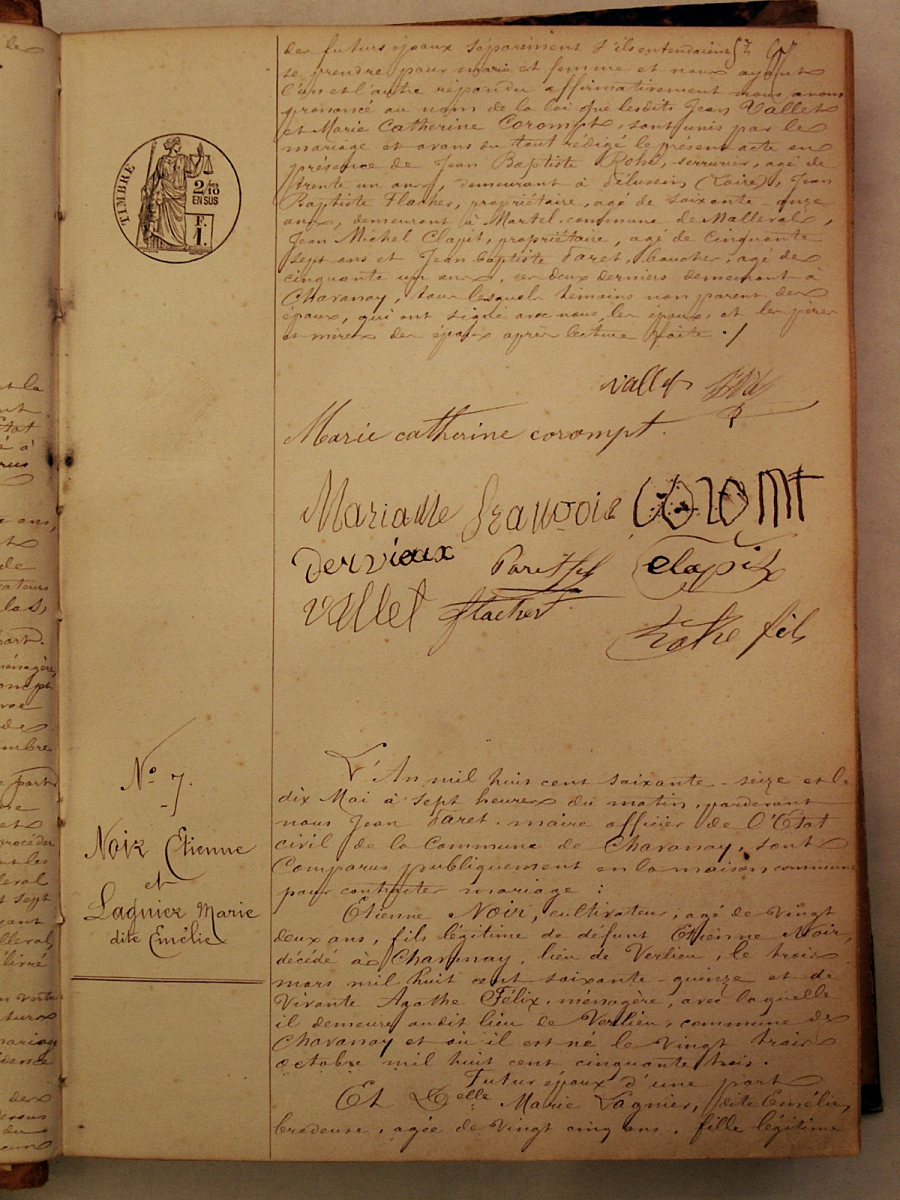 des futurs époux séparément s'ils entendaient
se prendre pour mari et femme et nous ayant
l'un et l'autre répondu affirmativement nous avons
prononcé au nom de la loi que lesdits Jean Vallet
et Marie Catherine Corompt, sont unis par le
mariage et avons du tout rédigé le présent acte en
présence de Jean Baptiste Rohe, serrurier, agé de
trente un ans, demeurant à Pélussin (Loire), Jean
Baptiste Flacher, propriétaire, agé de soixante-onze
ans, demeurant à Martel, commune de Malleval,
Jean Michel Clapit, propriétaire, agé de cinquante
sept ans et Jean baptiste Paret, boucher, agé de
cinquante un ans, ces deux derniers demeurant à
Chavanay, tous lesquels témoins non parent des
époux, qui ont signé avec nous, les époux, et les pères
et mères des époux après lecture faite ./
TIMBRE
2/10
EN SUS
F.
1.
Vallet
Marie catherine corompt.
Marianne françois COROMT
Dervieux Paret fils Clapit
Vallet flacher
Rohe fils
N° 7.
Noir Etienne
et
Lagnier Marie
dite Emélie
L'An mil huit cent soixante-seize et le
dix Mai à sept heures du matin, pardevant
nous Jean Paret, maire officier de l'Etat
civil de la Commune de Chavanay, sont
Comparus publiquement en la maison commune
pour contracter mariage :
Etienne Noir, cultivateur, agé de vingt
deux ans, fils légitime de défunt Etienne Noir,
décédé à Chavanay, lieu de Verlieu, le trois
mars mil huit cent soixante-quinze et de
Vivante Agathe Félix, ménagère, avec laquelle
il demeure audit lieu de Verlieu, commune de
Chavanay et où il est né le vingt trois
octobre mil huit cent cinquante trois.
Futur époux d'une part
Et Delle Marie Lagnier, dite Emélie,
brodeuse, agée de vingt cinq ans, fille légitime